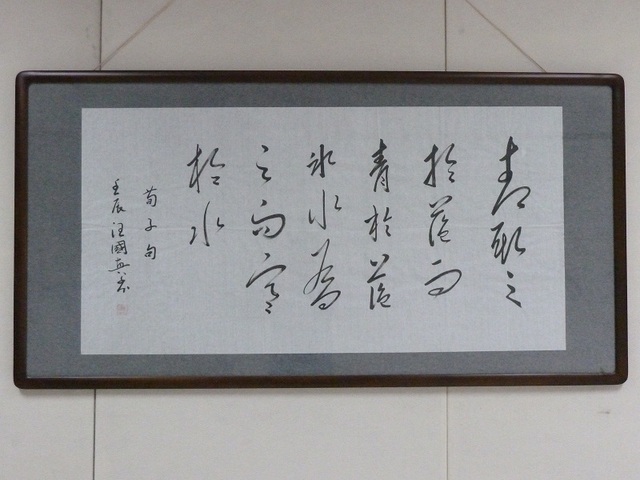 青取之
於蓝而
青於蓝
冰水为
之而寒
於水
荀子句
壬辰汪國真书